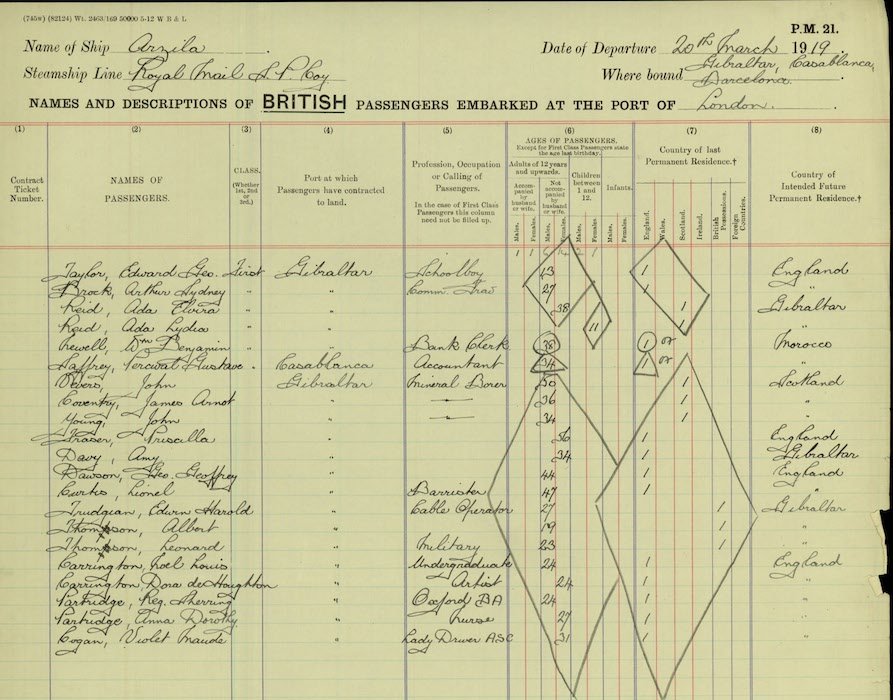 (745W) (82124) Wt. 2463/169 50000 5-12 W B & L
P.M. 21.
Name of Ship Arzila.
Date of Departure 20th March 1919.
Steamship Line Royal Mail S. P. Coy
Where bound Gibraltar, Casablanca, Barcelona.
NAMES AND DESCRIPTIONS OF BRITISH PASSENGERS EMBARKED AT THE PORT OF London.
(1) (2) (3) (4) (5) (6) (7) (8)
Contract Ticket Number.
NAMES OF PASSENGERS.
CLASS. (Whether 1st, 2nd or 3rd.)
Port at which Passengers have contracted to land.
Profession, Occupation or Calling of Passengers.
In the case of First Class Passengers this column need not be filled up.
AGES OF PASSENGERS.
Except for First Class Passengers state the age last birthday.
Adults of 12 years and upwards.
Accompanied by husband or wife.
Not accompanied by husband or wife.
Children between 1 and 12.
Infants.
Males. Females. Males. Females. Males. Females. Males. Females.
Country of last Permanent Residence.†
England. Wales. Scotland. Ireland. British Possessions. Foreign Countries.
Country of Intended Future Permanent Residence.†
Taylor, Edward Geo. First Gibraltar Schoolboy 13 1 England
Brock, Arthur Sydney " " Comm. Trav 27 1 "
Reid, Ada Elvira " " 38 1 Gibraltar
Reid, Ada Lydia " " 11 1 "
Wm Benjamin " " Bank Clerk 38 1 Morocco
Jaffrey, Percival Gustave " Casablanca Accountant 34 1 "
John Gibraltar Mineral Borer 50 1 Scotland
Coventry, James Arnot " — 36 1 "
Young, John " — 34 1 "
Fraser, Priscilla " 56 1 England
Davy, Amy " 34 1 Gibraltar
Dawson, Geo. Geoffrey " 44 1 England
Curtis, Lionel " Barrister 47 1 "
Trudgian, Edwin Harold " Cable Operator 27 1 Gibraltar
Thompson, Albert " 19 1 "
Thompson, Leonard " Military 23 1 "
Carrington, Noel Louis " Undergraduate 24 1 England
Carrington Dora de Houghton " Artist 24 1 "
Partridge, Reg. Sherring " Oxford BA 24 1
Partridge, Anna Dorothy " Nurse 27 1
Cogan, Violet Maude " Lady Driver ASC 31 1